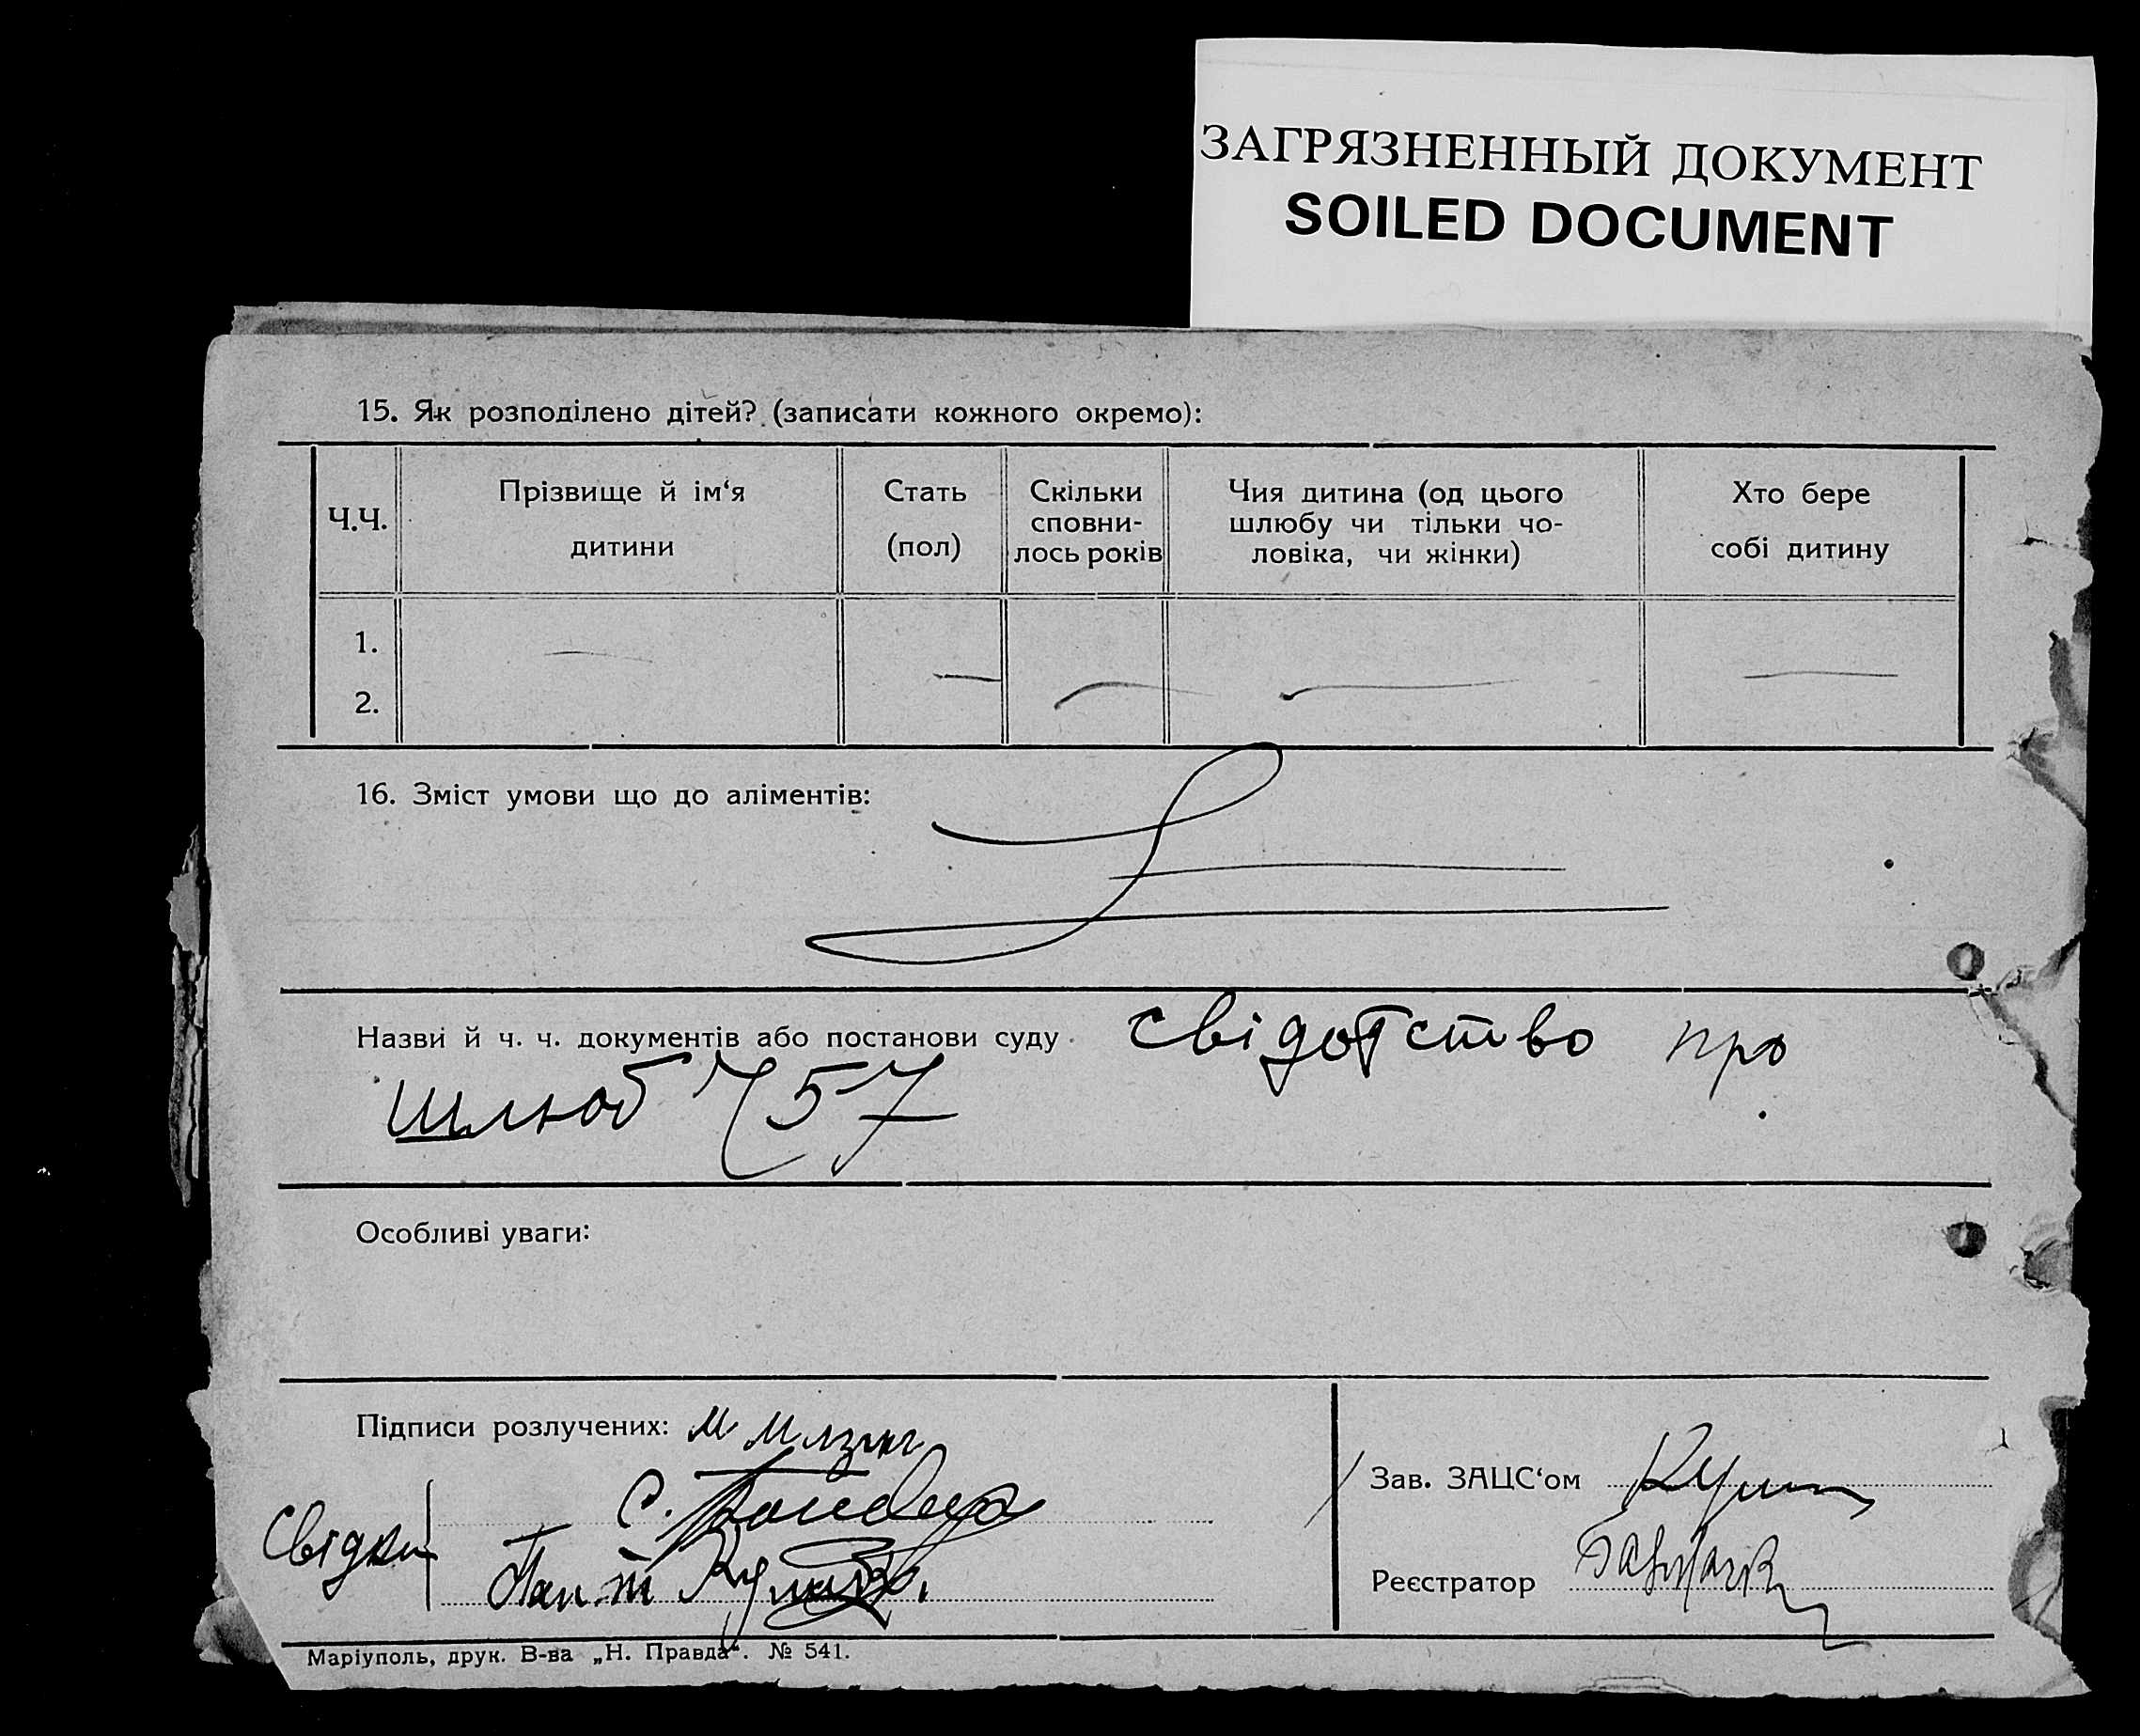 ЗАГРЯЗНЕННЫЙ ДОКУМЕНТ
SOILED DOCUMENT
15. Як розподілено дітей? (записати кожного окремо):
Ч.Ч.
Прізвище й ім‘я
дитини
Стать
(пол)
Скільки
сповни-
лось років
Чия дитина (од цього
шлюбу чи тільки чо-
ловіка, чи жінки)
Хто бере
собі дитину
1.
2.
16. Зміст умови що до аліментів:
Назви й ч. ч. документів або постанови суду свідотство про
шлюб Ч 57
Особливі уваги:
Підписи розлучених:
Свідки
Зав. ЗАЦС‘ом
Реєстратор
Маріуполь, друк. В-ва „Н. Правда“. № 541.